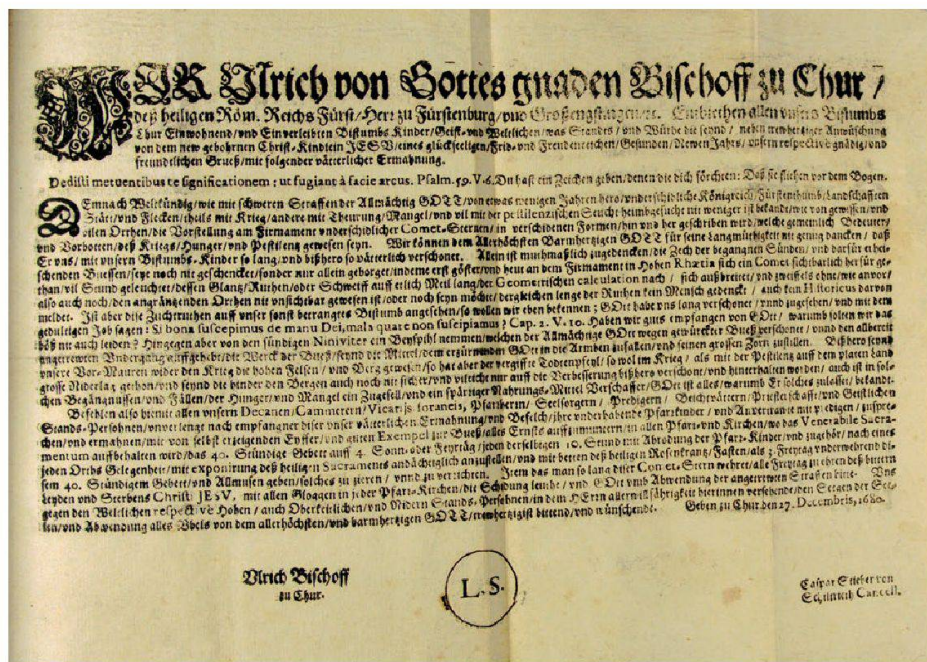 WIR Ulrich von Gottes gnaden Bischoff zu Chur/
deß heiligen Röm. Reichs Fürst/Herr zu Fürstenburg/vnd Großengstingen/rc. Embiethen allen vnsern Bistumbs
Chur Einwohnend/vnd Einverleibten Bistumbs Kinder/Geist-vnd Weltlichen/was Standes/vnd Würde die seynd/neben
von dem new gebohrnen Christ-Kindlein JESV/eines glückseeligen/Frid-vnd Frendenreichen/Gesunden/Newen Jahrs/vnsern respectivè gnädig/vnd
freundlichen Grueß/mit folgender vätterlicher Ermahnung.
Dedisti metuentibus te significationem: ut fugiant à facie arcus. Psalm. 59. V. 6. Du hast ein Zeichen geben/denen die dich förchten: Daß sie fliehen vor dem Bogen.
DEmnach Weltkündig/wie mit schweren Straffen der Allmächtig GOTT/von etwas wenigen Jahren hero/vnderschidliche Königreich/Fürstenthumb/Landschafften
Stätt/vnd Flecken/theils mit Krieg/andere mit Theurung/Mangel/vnd vil mit der pestilenzischen Seuche heimbgesucht nit weniger ist bekandt/wie von gewissen/vnd
vilen Orthen/die Vorstellung am Firmament vnderschidlicher Comet-Sternen/in verschidenen Formen/hin vnd her geschriben wird/welche gemeinlich Bedeuter/
vnd Vorbotten/deß Kriegs/Hunger/vnd Pestilenz gewesen seyn. Wir können dem Allerhöchsten Barmherzigen GOTT für seine Langmüthigkeit nit genug dancken/daß
Er vns/mit vnsern Bistumbs-Kinder so lang/vnd bißhero so vätterlich verschonet. Allein ist muthmaßlich zugedencken/die Zech der begangnen Sünden/vnd darfür erhei-
schenden Buessen/seye noch nit geschencket/sonder nur allein geborget/indeme erst göster/vnd heut an dem Firmament in Hohen Rhætia sich ein Comet sichtbarlich herfür ge-
than/vil Stund geleuchtet/dessen Glantz/Ruthen/oder Schweiff auff etlich Meil lang/der Geometrischen calculation nach/sich außbreitet/vnd zweifels ohne/wie anvor/
also auch noch/den angräntzenden Orthen nit vnsichtbar gewesen ist/oder noch seyn möchte/dergleichen lenge der Ruthen kein Mensch gedenckt/auch kein Historicus darvon
meldet. Ist aber dise Zuchtruthen auff vnser sonst betrangtes Bistumb angesehen/so wollen wir eben bekennen; GOtt habe vns lang verschonet/vnnd zugesehen/vnd mit dem
gedultigen Job sagen: Si bona suscepimus de manu Dei, mala quare non suscipiamus? Cap. 2. V. 10. Haben wir guts empfangen von GOtt/warumb solten wir das
böß nit auch leiden? Hingegen aber von den sündigen Niniviter ein Beyspihl nemmen/welchen der Allmächtige GOtt wegen gewürckter Bueß verschonet/vnnd den allbereit
angetrewten Vndergang auffgehebt/die Werck der Bueß/seynd die Mittel/dem erzürnenden GOtt in die Armben zufallen/vnd seinen grossen Zorn zustillen. Biß hero seynd
vnsere Vor-Mauren wider den Krieg die hohen Felsen/vnd Berg gewesen/so hat aber der vergiffte Todtenpfeyl/so wol im Krieg/als mit der Pestilenz auff dem platen Land
grosse Niderlag gethon/vnd seynd die hinder den Bergen auch noch nit sicher/vnd villeicht nur auff die Verbesserung bißhero verschont/vnd hinderhalten worden/auch ist in sol-
chen Begängnussen/vnd Fällen/der Hunger/vnd Mangel ein Zugesell/vnd ein spärtiger Nahrungs-Mittel Verschaffer/GOtt ist alles/warumb Er solches zulasset/bekandt.
Befehlen also hiemit allen vnsern Decanen/Cammerern/Vicarijs foraneis, Pfarrherrn/Seelsorgern/Predigern/Beichtvättern/Priesterschafft/vnd Geistlichen
Stands-Persohnen/vnverlenge nach empfangner diser vnser vätterlichen Ermahnung/vnd Befelch/ihre vnderhabende Pfarrkinder/vnd Anvertraute mit predigen/zuspre-
chen/vnd ermahnen/mit von selbst erzeigenden Eyffer/vnd guten Exempel zur Bueß/alles Ernsts auffzumuntern/in allen Pfarr-vnd Kirchen/wo das Venerabile Sacra-
mentum auffbehalten wird/das 40. Stündige Gebett auff 4. Sonn-oder Feyrtäg/jeden derselbigen 10. Stund mit Abrodung der Pfarr-Kinder/vnd zugehör/nach eines
jeden Orths Gelegenheit/mit exponirung deß heiligen Sacramentes andächtiglich anzustellen/vnd mit betten deß heiligen Rosenkrantz/Fasten/als 3. Freytag vnderwehrend di-
sem 40. Stündigem Gebett/vnd Allmusen geben/solches zu zieren/vnnd zu verrichten. Item das man so lang diser Comet-Stern wehret/alle Freytag zu ehren deß bittern
Leyden vnd Sterbens Christi JEsV, mit allen Gloggen in jeder Pfarr-Kirchen/die Schidung leuthe/vnd GOtt vmb Abwendung der angetrewten Straffen bitte. Vns
gegen den Weltlichen respectivè Hohen/auch Oberkeitlichen/vnd Nidern Stands-Persehnen/in dem HErrn aller willfährigkeit hierinnen versehende/den Seegen der See-
len/vnd Abwendung alles Vbels von dem allerhöchsten/vnd barmherzigen GOTT/ bittend/vnd wünschende. Geben zu Chur den 27. Decembris, 1680.
Vlrich Bischoff
zu Chur.
L. S.
Caspar
Cantzell.